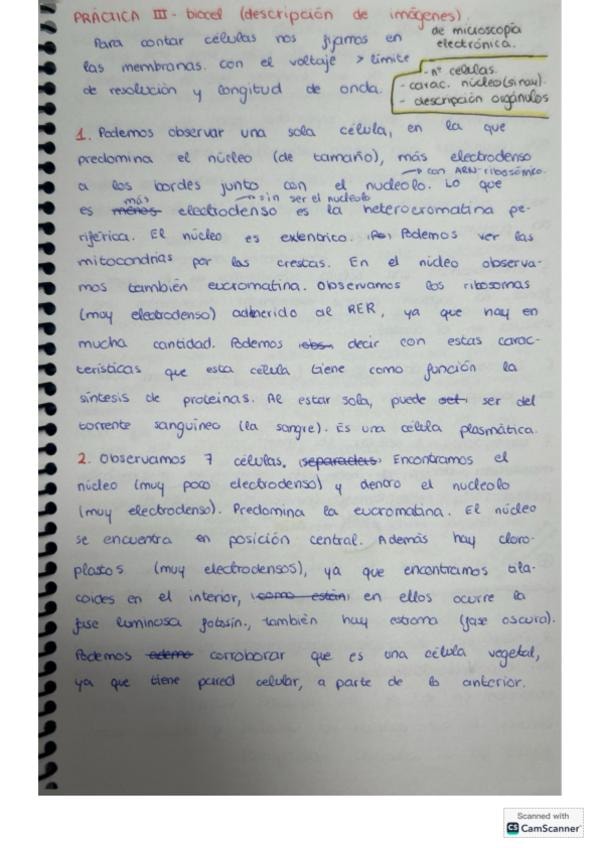 PRÁCTICA III - biocel (descripción de imágenes)
de microscopía
electrónica.
Para contar células nos fijamos en
las membranas. con el voltaje > límite
de resolución y longitud de onda.
- nº células.
- carac. núcleo (si hay)
- descripción orgánulos
1. Podemos observar una sola célula, en la que
predomina el núcleo (de tamaño), más electrodenso
→ con ARN-ribosómico.
a los bordes junto con el nucleolo. Lo que
más → sin ser el nucleolo
es menos electrodenso es la heterocromatina pe-
riférica. El núcleo es exéntrico. Podemos ver las
mitocondrias por las crestas. En el núcleo observa-
mos también eucromatina. Observamos los ribosomas
(muy electrodenso) adherido al RER, ya que hay en
mucha cantidad. Podemos obsn decir con estas carac-
terísticas que esta célula tiene como función la
síntesis de proteínas. Al estar sola, puede ser del
torrente sanguíneo (la sangre). Es una célula plasmática.
2. Observamos 7 células. Encontramos el
núcleo (muy poco electrodenso) y dentro el nucleolo
(muy electrodenso). Predomina la eucromatina. El núcleo
se encuentra en posición central. Además hay cloro-
plastos (muy electrodensos), ya que encontramos tila-
coides en el interior, como están en ellos ocurre la
fase luminosa fotosín., también hay estroma (fase oscura).
Podemos ademo corroborar que es una célula vegetal,
ya que tiene pared celular, a parte de lo anterior.
Scanned with
CS CamScanner